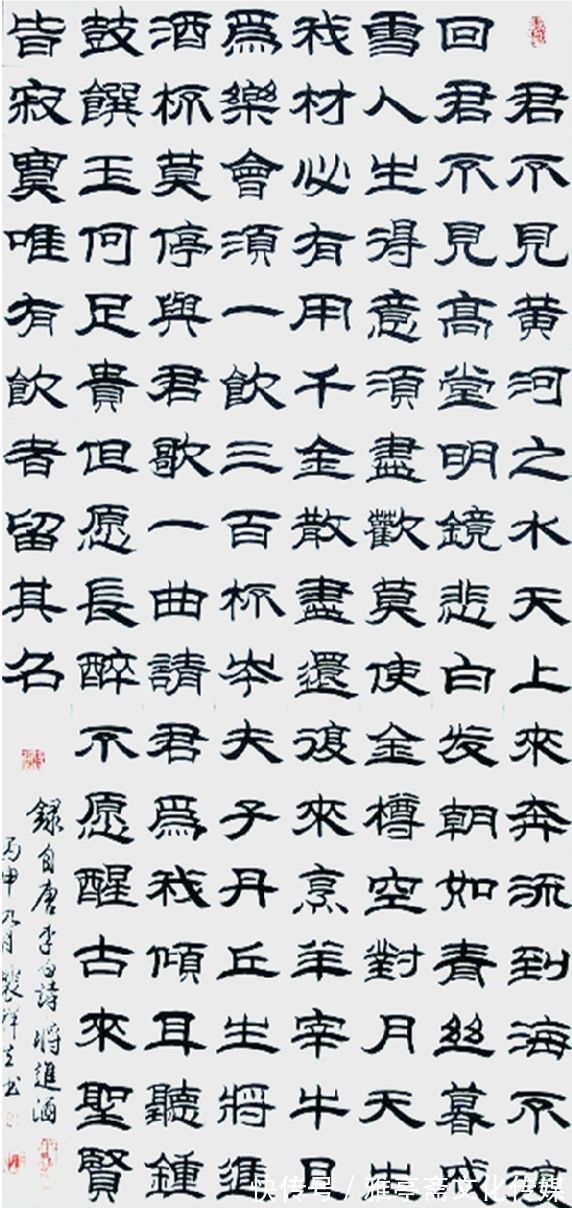 君不見黄河之水天上來奔流到海不復
回君不見髙堂明鏡悲白发朝如青絲暮成
雪人生得意須盡歡莫使金樽空對月天生
我材必有用千金散盡還復來烹羊宰牛且
爲樂會須一飲三百杯岑夫子丹丘生將進
酒杯莫停與君歌一曲請君爲我傾耳聽鍾
鼓饌玉何足貴但愿長醉不愿醒古來聖賢
皆寂寞唯有飲者留其名
録自唐李白詩將進酒
丙申九月裴祥书
快传号 / 雅亭斋文化传媒